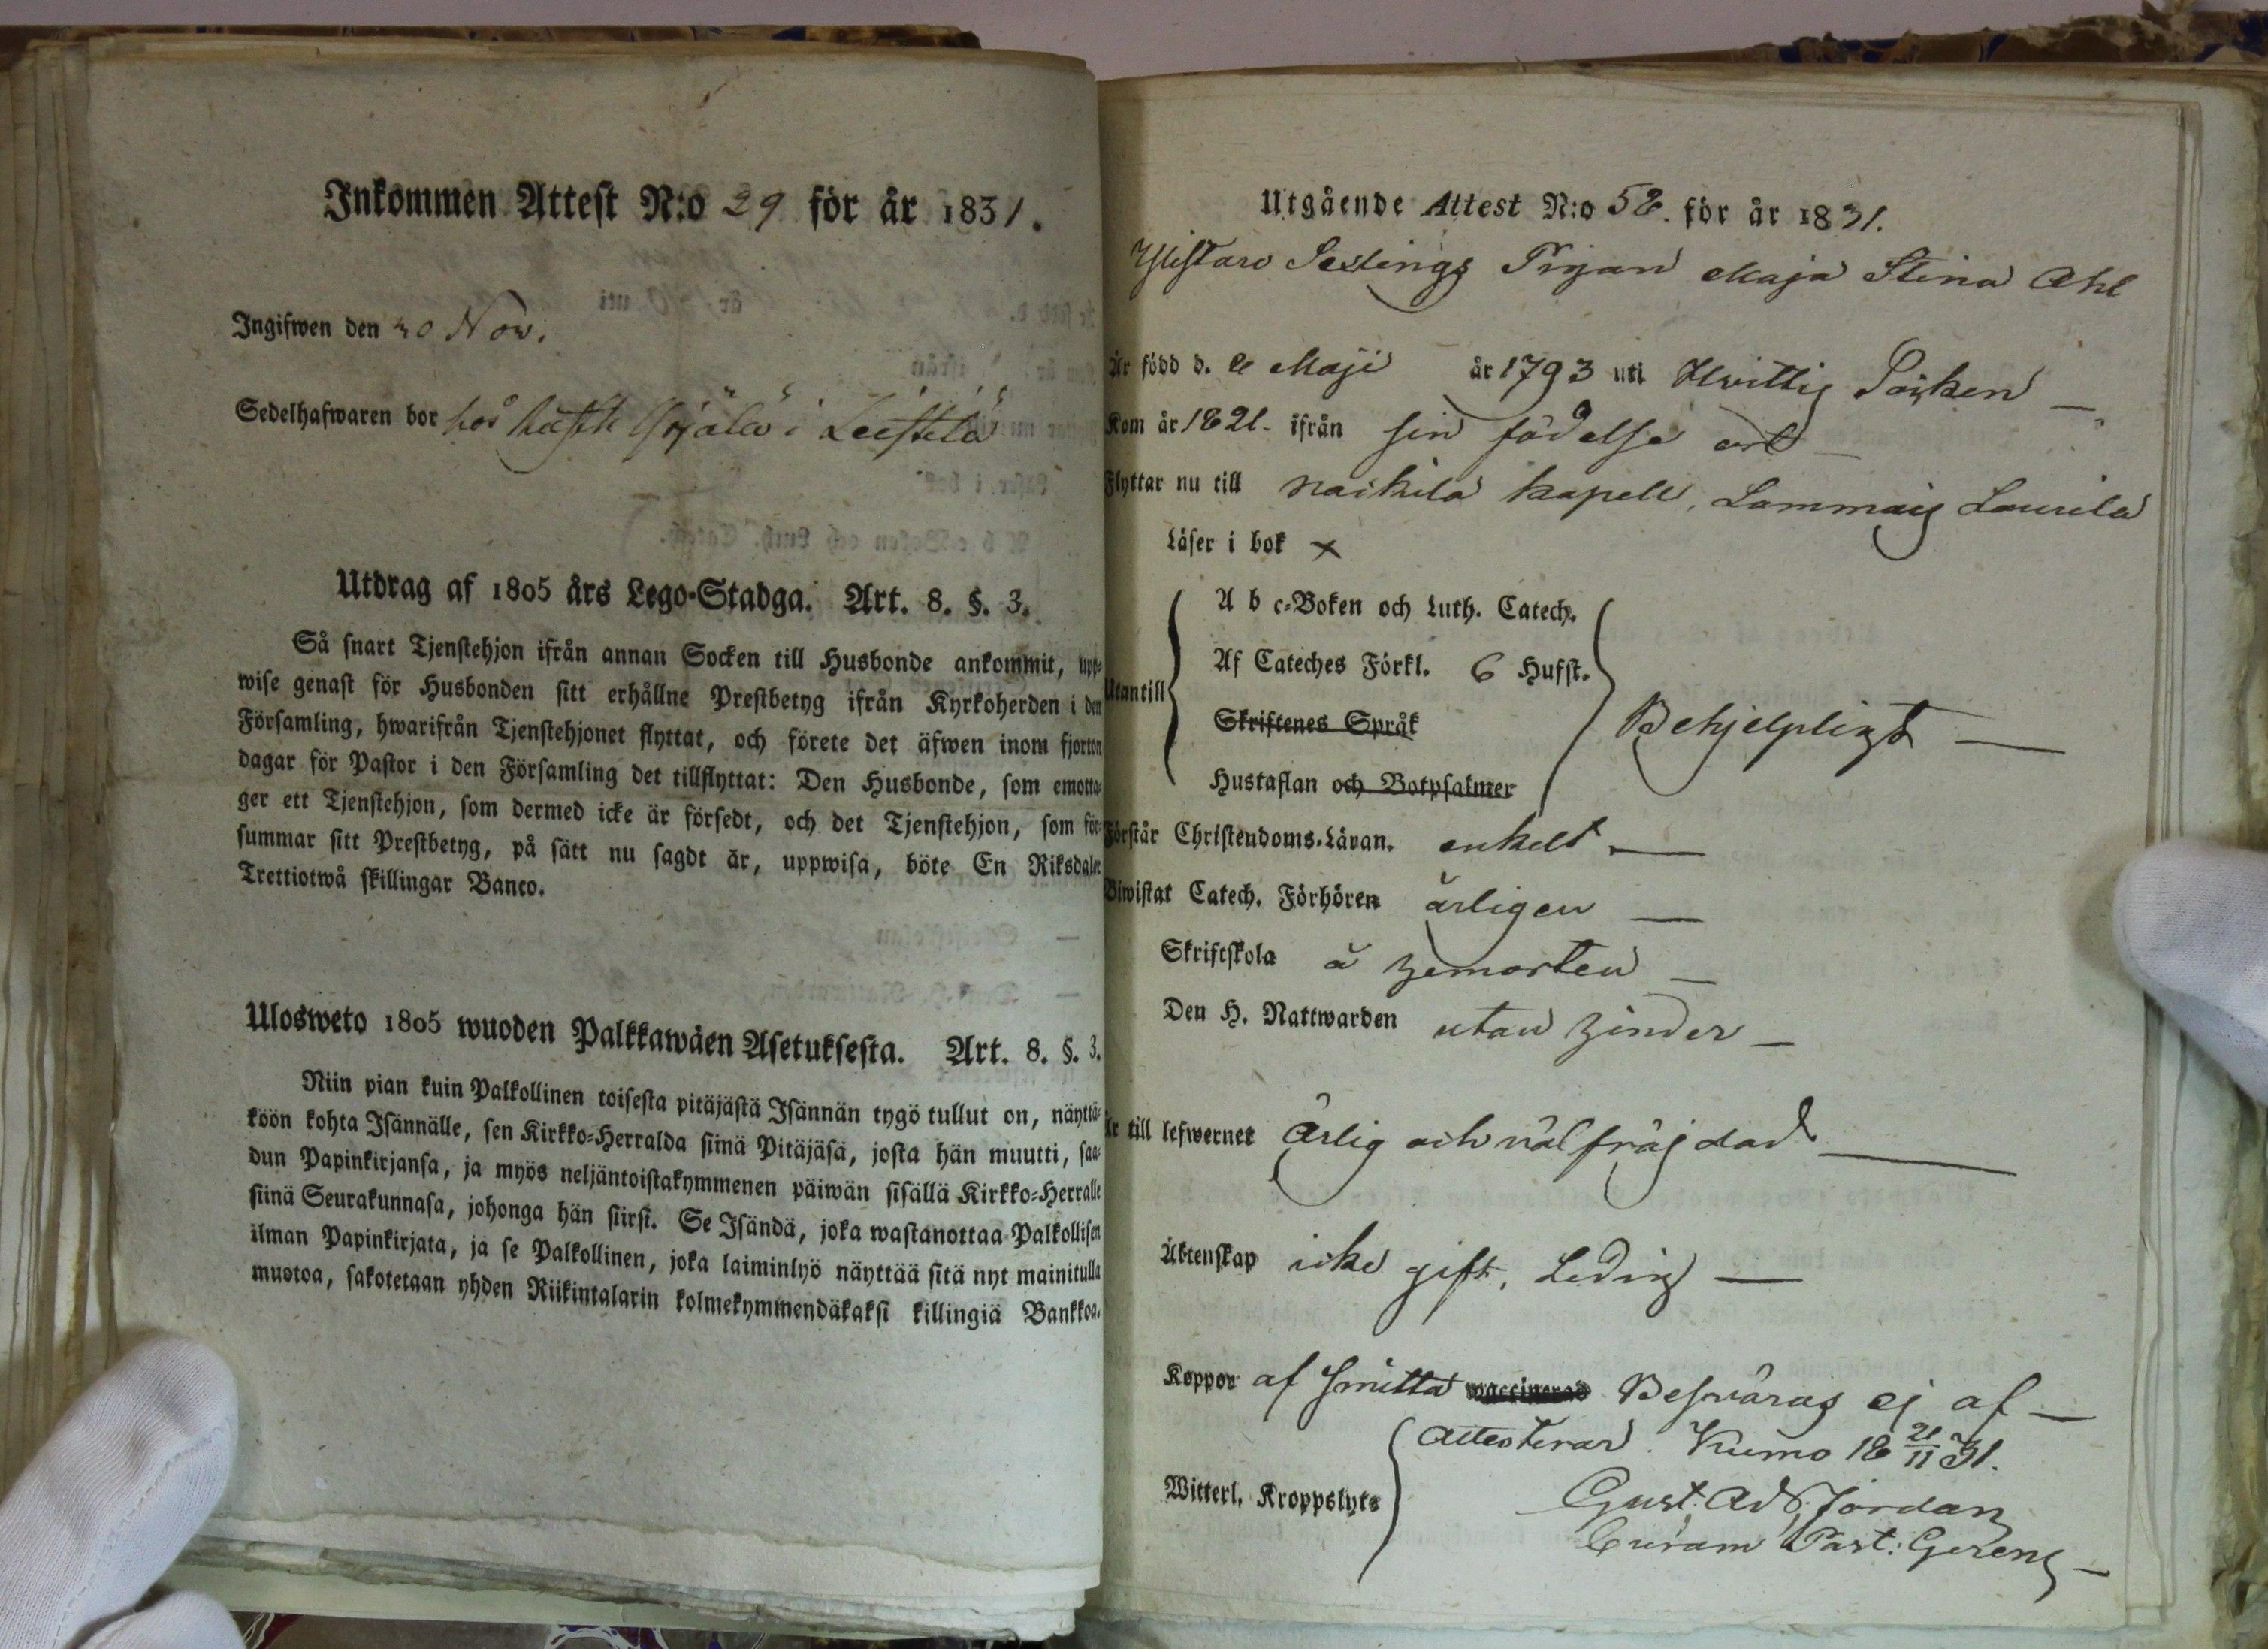 Inkommen Attest N:o 29 för år 1831.
Ingifwen den 30 Nov.
Sedelhafwaren bor hos i Leistilä
Utdrag af 1805 års Lego-Stadga. Art. 8. §. 3.
Så snart Tjenstehjon ifrån annan Socken till Husbonde ankommit, upp-
wise genast för Husbonden sitt erhållne Prestbetyg ifrån Kyrkoherden i den
Församling, hwarifrån Tjenstehjonet flyttat, och förete det äfwen inom fjorton
dagar för Pastor i den Församling det tillflyttat: Den Husbonde, som emotta-
ger ett Tjenstehjon, som dermed icke är försedt, och det Tjenstehjon, som för-
summar sitt Prestbetyg, på sätt nu sagdt är, uppwisa, böte En Riksdaler
Trettiotwå skillingar Banco.
Ulosweto 1805 wuoden Palkkawäen Asetuksesta. Art. 8. §. 3.
Niin pian kuin Palkollinen toisesta pitäjästä Isännän tygö tullut on, näyttä-
köön kohta Isännälle, sen Kirkko-Herralda siinä Pitäjäsä, josta hän muutti, saa-
dun Papinkirjansa, ja myös neljäntoistakymmenen päiwän sisällä Kirkko-Herralle
siinä Seurakunnasa, johonga hän siirsi. Se Isändä, joka wastanottaa Palkollisen
ilman Papinkirjata, ja se Palkollinen, joka laiminlyö näyttää sitä nyt mainitulla
muotoa, sakotetaan yhden Riikintalarin kolmekymmendäkaksi killingiä Bankkoa.
Utgående Attest N:o 58. för år 1831.
Ylistaro Sexlings Pigan Maja Stina Ahl
Är född d. 8 Maji år 1793 uti Hvittis Socken
Kom år 1821 ifrån sin födelse ort
Flyttar nu till Nackila kapell, Lammais Laurila
Läser i bok x
Utantill
A b c-Boken och Luth. Catech.
Af Cateches Förkl. 6 Hufst.
Skriftenes Språk
Hustaflan och Botpsalmer
Behjelpligt
Förstår Christendoms-Läran. enkelt
Biwistat Catech. Förhören årligen
Skriftskola å hemorten
Den H. Nattwarden utan hinder
Är till lefwernet Ärlig och väl fräjdad
Äktenskap icke gift, Ledig
Koppor af smitta vaccinerad Besväras ej af
Witterl. Kroppslyte
Attesterar. Kumo 18 21/11 31.
Gust. Ad. Jordan
Curam Past: Gerens